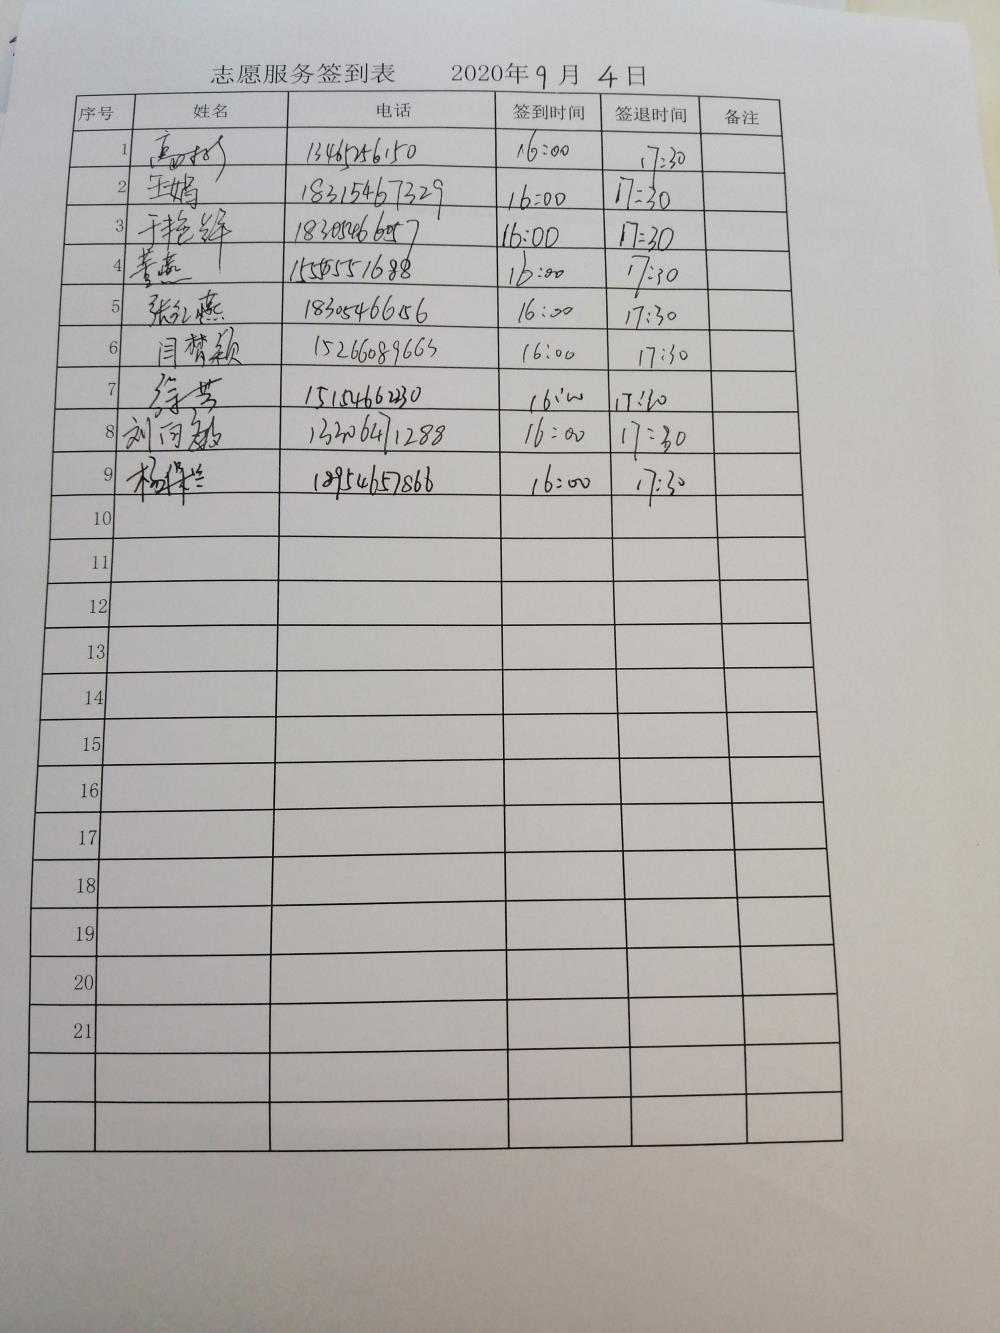 志愿服务签到表 2020年9月4日
序号 姓名 电话 签到时间 签退时间 备注
1 13465256150 16:00 17:30
2 王娟 18315467329 16:00 17:30
3 于艳辉 18305466057 16:00 17:30
4 董燕 15505551688 16:00 17:30
5 张红燕 18305466156 16:00 17:30
6 闫梦颖 15266089663 16:00 17:30
7 徐芸 15154662230 16:00 17:30
8 刘向敏 13306471288 16:00 17:30
9 杨保兰 18954657866 16:00 17:30
10
11
12
13
14
15
16
17
18
19
20
21